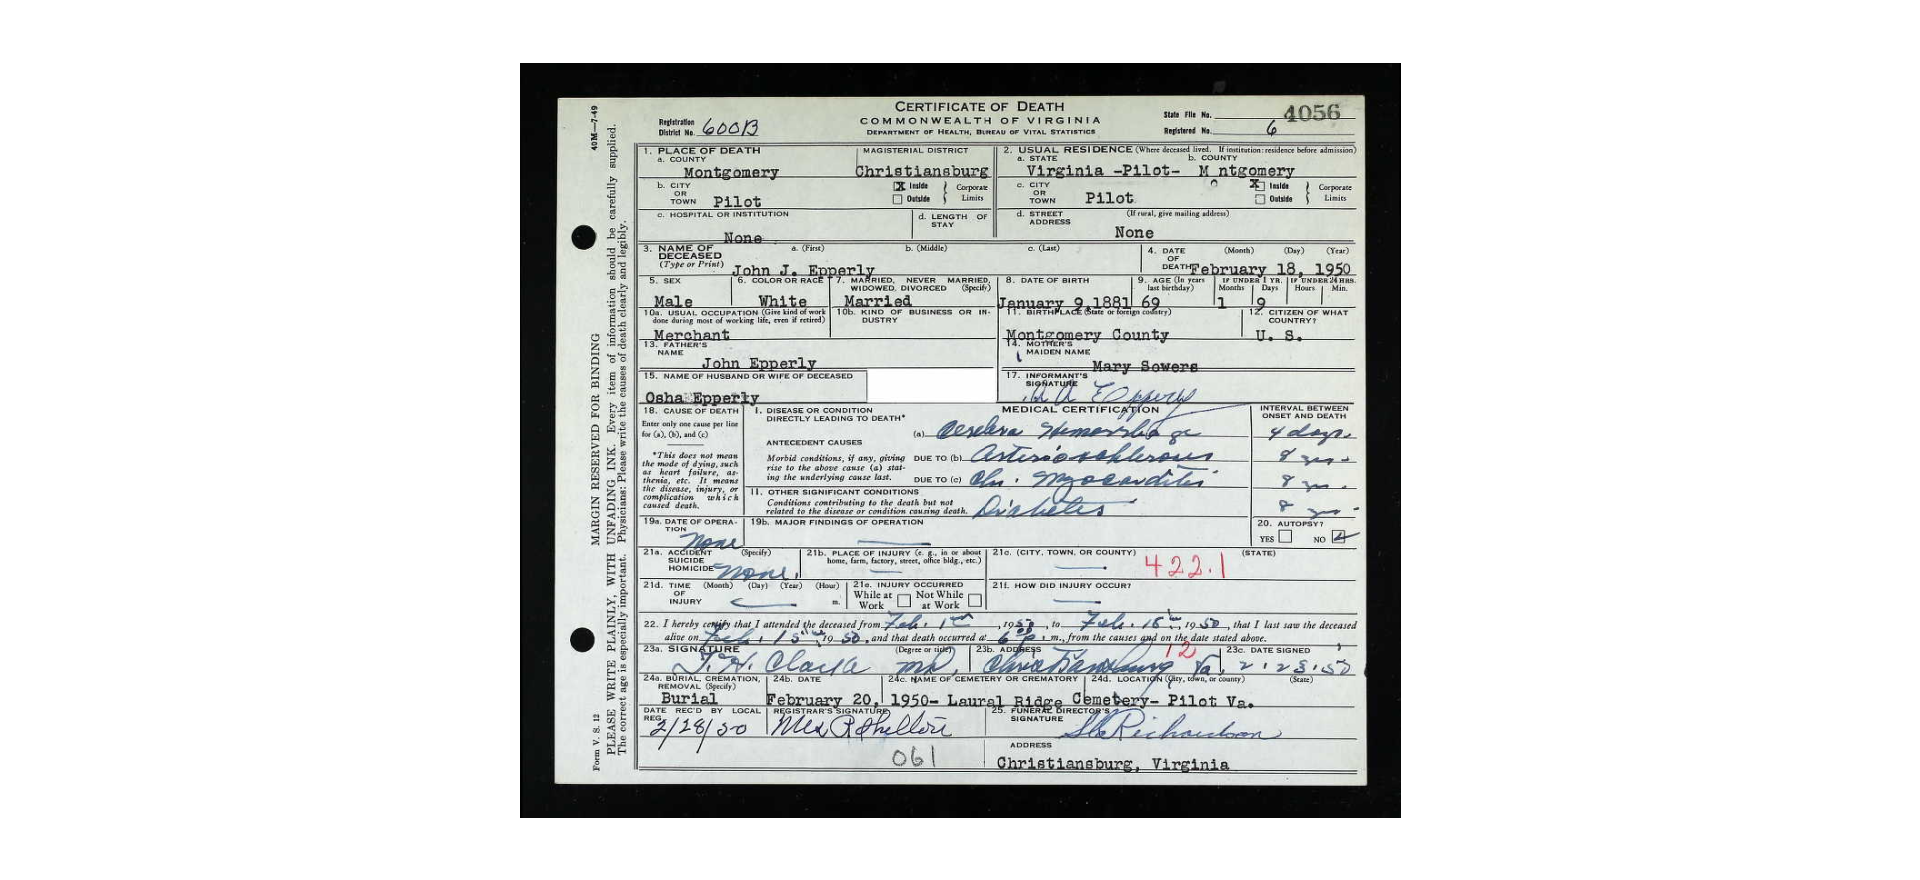 CERTIFICATE OF DEATH
COMMONWEALTH OF VIRGINIA
DEPARTMENT OF HEALTH, BUREAU OF VITAL STATISTICS
Registration District No. 600B
State File No. 4056
Registered No. 6
40M—7-49
MARGIN RESERVED FOR BINDING
PLEASE WRITE PLAINLY, WITH UNFADING INK. Every item of information should be carefully supplied.
The correct age is especially important. Physicians: Please write the causes of death clearly and legibly.
Form V. S. 12
1. PLACE OF DEATH
a. COUNTY Montgomery
MAGISTERIAL DISTRICT Christiansburg
2. USUAL RESIDENCE (Where deceased lived. If institution: residence before admission)
a. STATE b. COUNTY
Virginia -Pilot- M ntgomery
b. CITY OR TOWN Pilot
X Inside Outside } Corporate Limits
c. CITY OR TOWN Pilot
X Inside Outside } Corporate Limits
c. HOSPITAL OR INSTITUTION None
d. LENGTH OF STAY
d. STREET ADDRESS (If rural, give mailing address)
None
3. NAME OF DECEASED (Type or Print) a. (First) b. (Middle) c. (Last)
John J. Epperly
4. DATE OF DEATH (Month) (Day) (Year)
February 18, 1950
5. SEX Male
6. COLOR OR RACE White
7. MARRIED, NEVER MARRIED, WIDOWED, DIVORCED (Specify) Married
8. DATE OF BIRTH January 9,1881
9. AGE (In years last birthday) 69
IF UNDER 1 YR. Months 1 Days 9
IF UNDER 24 HRS. Hours Min.
10a. USUAL OCCUPATION (Give kind of work done during most of working life, even if retired) Merchant
10b. KIND OF BUSINESS OR INDUSTRY
11. BIRTHPLACE (State or foreign country) Montgomery County
12. CITIZEN OF WHAT COUNTRY? U. S.
13. FATHER'S NAME John Epperly
14. MOTHER'S MAIDEN NAME Mary Sowers
15. NAME OF HUSBAND OR WIFE OF DECEASED
Osha Epperly
17. INFORMANT'S SIGNATURE A Epperly
18. CAUSE OF DEATH
Enter only one cause per line for (a), (b), and (c)
*This does not mean the mode of dying, such as heart failure, asthenia, etc. It means the disease, injury, or complication which caused death.
MEDICAL CERTIFICATION
INTERVAL BETWEEN ONSET AND DEATH
I. DISEASE OR CONDITION DIRECTLY LEADING TO DEATH*
(a) Cerebra Hemorrhage 4 days
ANTECEDENT CAUSES
Morbid conditions, if any, giving rise to the above cause (a) stating the underlying cause last.
DUE TO (b) Arteriosclerosis 8 yrs
DUE TO (c) Chr. Myocarditis 8 yrs.
II. OTHER SIGNIFICANT CONDITIONS
Conditions contributing to the death but not related to the disease or condition causing death.
Diabetes 8 yrs
19a. DATE OF OPERATION None
19b. MAJOR FINDINGS OF OPERATION
20. AUTOPSY? YES NO
21a. ACCIDENT SUICIDE HOMICIDE (Specify) None.
21b. PLACE OF INJURY (e. g., in or about home, farm, factory, street, office bldg., etc.)
21c. (CITY, TOWN, OR COUNTY) (STATE)
422.1
21d. TIME OF INJURY (Month) (Day) (Year) (Hour) m.
21e. INJURY OCCURRED
While at Work Not While at Work
21f. HOW DID INJURY OCCUR?
22. I hereby certify that I attended the deceased from Feb. 1st, 1950, to Feb. 18th, 1950, that I last saw the deceased
alive on Feb. 15th, 1950, and that death occurred at 6 p. m., from the causes and on the date stated above.
23a. SIGNATURE (Degree or title)
T. H. Clark MD.
23b. ADDRESS Christiansburg Va.
12
23c. DATE SIGNED 2.23.50
24a. BURIAL, CREMATION, REMOVAL (Specify) Burial
24b. DATE February 20, 1950-
24c. NAME OF CEMETERY OR CREMATORY Laural Ridge Cemetery-
24d. LOCATION (City, town, or county) (State) Pilot Va.
DATE REC'D BY LOCAL REG. 2/28/50
REGISTRAR'S SIGNATURE
25. FUNERAL DIRECTOR'S SIGNATURE Richardson
061
ADDRESS
Christiansburg, Virginia